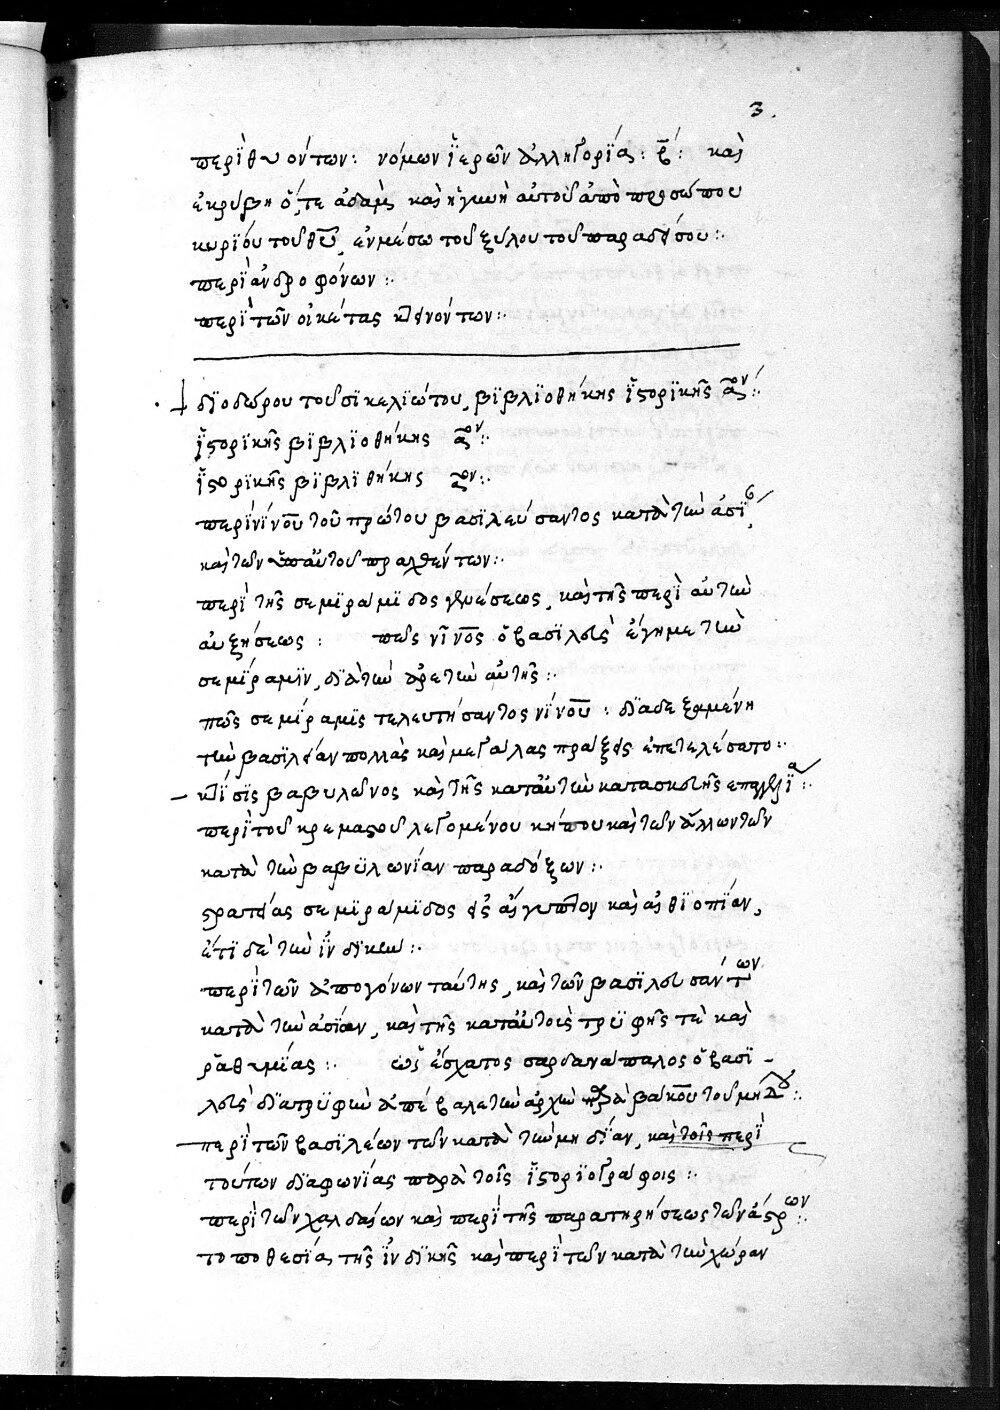 3.
περὶ θυόντων: νόμων ϊερῶν ἀλληγορία: β: καὶ
ἐκρύβη ὅ,τε ἀδαμ, καὶ ἡ γυνὴ αὐτοῦ ἀπὸ προσώπου
κυρίου τοῦ θυ, ἐν μέσω τοῦ ξύλου τοῦ παραδείσου:·
περὶ ἀνδροφόνων:·
περὶ τῶν οἰκέτας κτεινόντων:·
διοδώρου τοῦ σικελιώτου, βιβλιοθήκης ἱστορικῆς αον:·
ἱστορικῆς βιβλιοθήκης αον:·
ἱστορικῆς βιβλιθήκης ον:·
περὶ νίνου τοῦ πρώτου βασιλεύσαντος κατὰ τὴν ἀσί
καὶ τῶν ὑπ' αὐτοῦ πραχθέντων:·
περὶ τῆς σεμιράμιδος γενέσεως, καὶ τῆς περὶ αὐτὴν
αὐξήσεως: πῶς νῖνος ὁ βασιλεὺς ἔγημε τὴν
σεμίραμιν, διὰ τὴν ἀρετὴν αὐτῆς:·
πῶς σεμίραμις τελευτήσαντος νίνου: διαδεξαμένη
τὴν βασιλείαν πολλὰς καὶ μεγάλας πράξεις ἐπετελέσατο:·
κτίσις βαβυλῶνος καὶ τῆς κατ' αὐτὴν κατασκευῆς ἐπαγγελία:·
περὶ τοῦ κρεμαστοῦ λεγομένου κήπου καὶ τῶν ἄλλων τῶν
κατὰ τὴν βαβυλωνίαν παραδόξων:·
στρατείας σεμιράμιδος εἰς αἴγυπτον καὶ αἰθιοπίαν,
ἔτι δὲ τὴν ἰνδικὴν:·
περὶ τῶν ἀπογόνων ταύτης, καὶ τῶν βασιλευσάντων
κατὰ τὴν ἀσίαν, καὶ τῆς κατ' αὐτοὺς τρυφῆς τὲ καὶ
ῥαθυμίας:· ὡς ἔσχατος σαρδανάπαλος ὁ βασι-
λεὺς διὰ τρυφὴν ἀπέβαλε τὴν ἀρχὴν ὑπὸ ἀρβάκου τοῦ μήδου:·
περὶ τῶν βασιλέων τῶν κατὰ τὴν μηδίαν, καὶ τοῖς περὶ
τούτων διαφωνίας παρὰ τοῖς ἱστοριογράφοις:·
περὶ τῶν χαλδαίων καὶ περὶ τῆς παρατηρήσεως τῶν ἄστρων:·
τοποθεσία τῆς ἰνδικῆς καὶ περὶ τῶν κατὰ τὴν χώραν